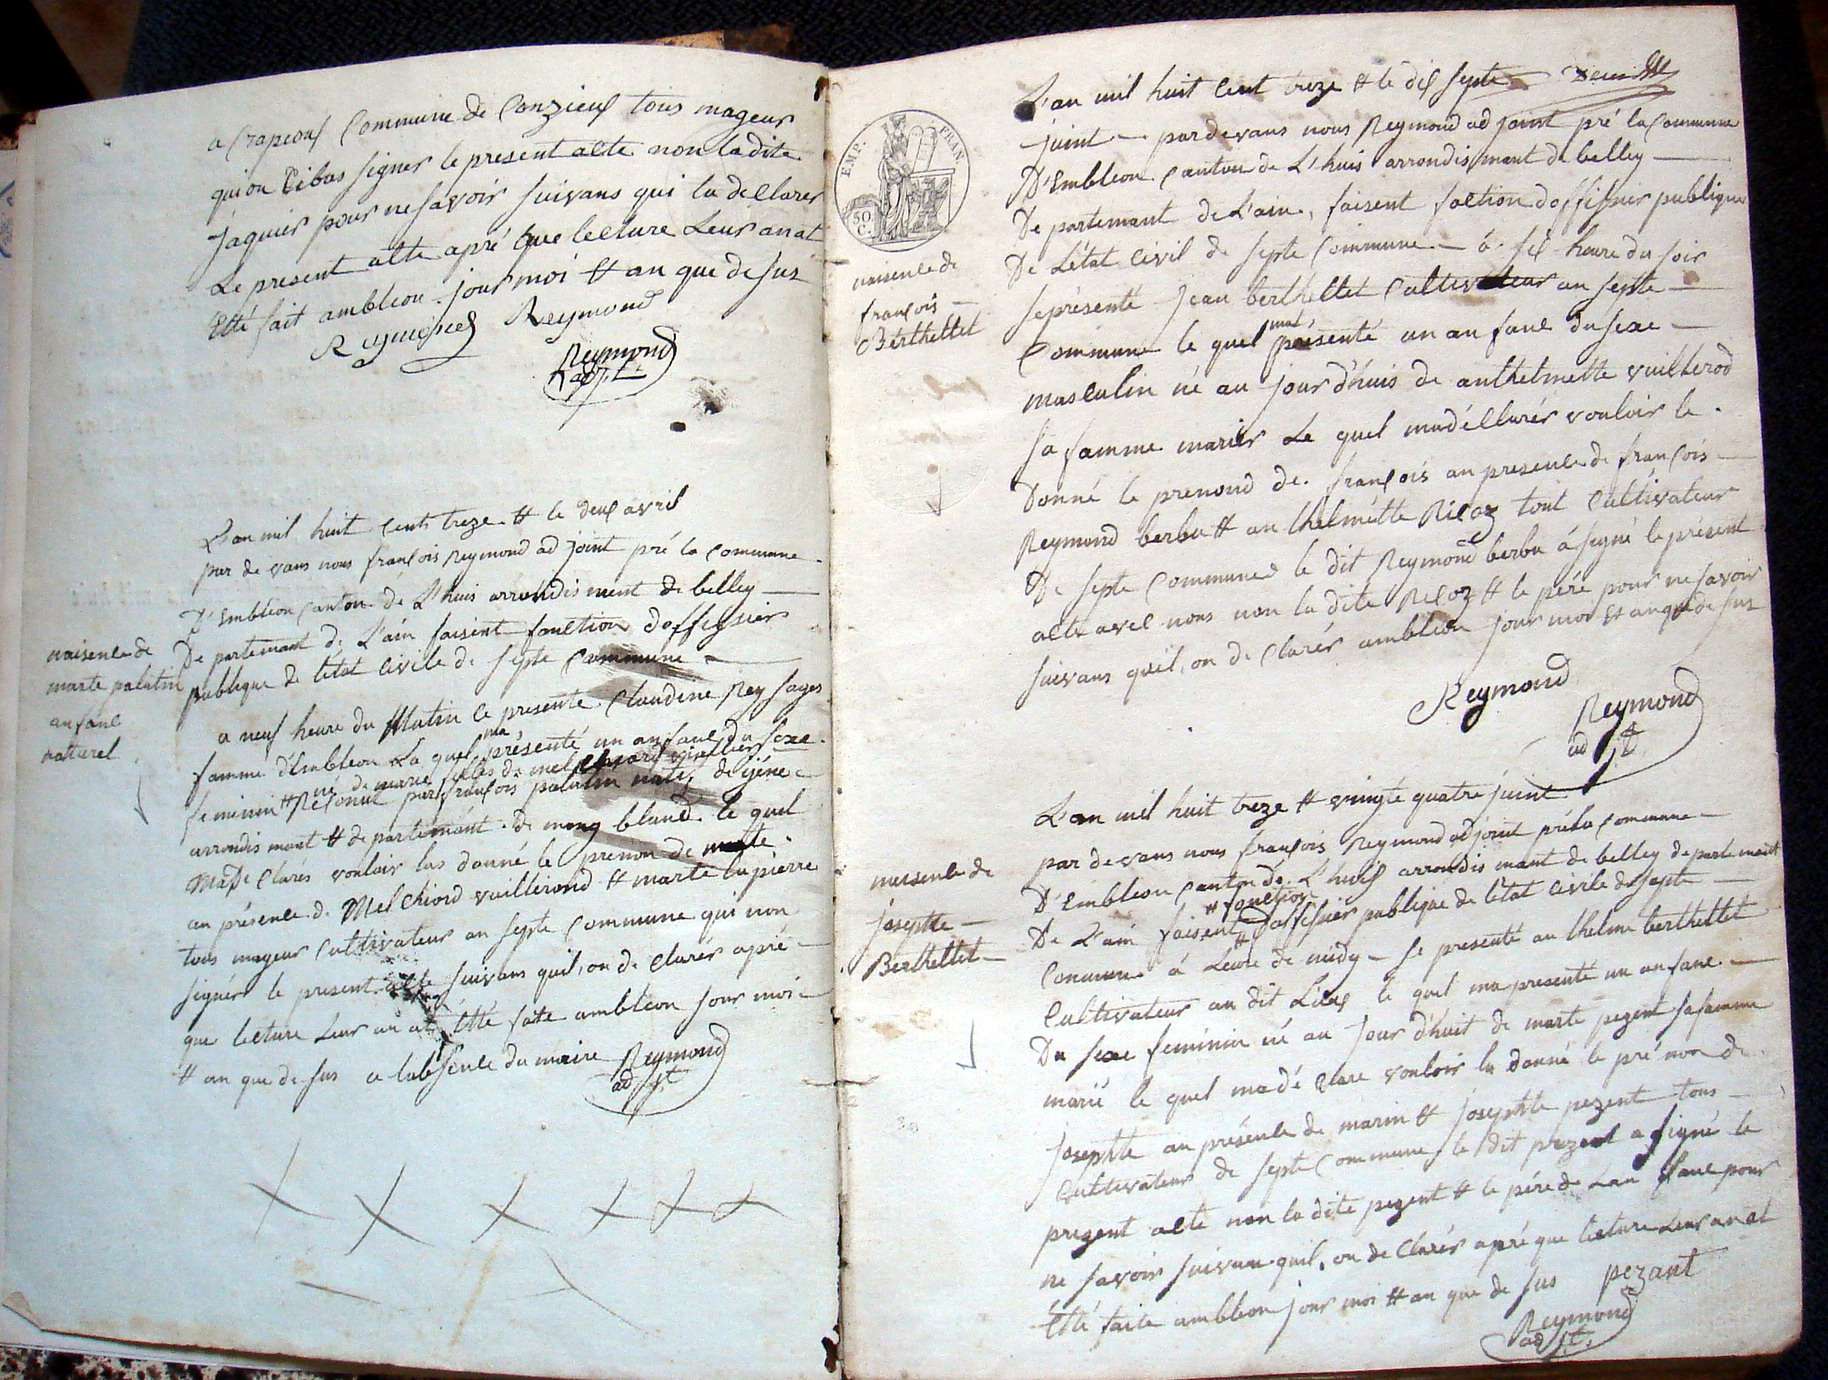 a Crapeous Commune de Conzieux tous mageur
qui on Cibas signer le present alte non la dite
jaquier pour ne savoir suivans qui la declarer
Le present alte apré que lecture Leur an at
Etté fait ambleon jour moi et an que de sus
Reymond
Reymond
adjt
L'an mil huit Cent treze et le deux avril
par de vans nous françois Reymond ad joint pré la Commune
D'Embleon Canton de L'huis arrondis ment de belley
De partemant de L'ain faisent fonction doffissier
publique de létat Civile de septe Commune
naisence de
marte palatin
anfant
naturel
a neuf heure du Matin ce presente Claudine Rey sages
famme d'Embleon La quel ma présenté un anfant du sexe
né de marie filles de melchiord vuillierod
feminin et Reconut par françois palatin natif de
arrondis mant et de partemant de mong bland le quel
Ma de Clarés vouloir lus donné le prenon de marte
an présence de Melchiord vuillerod et marte lapierre
tous mageur Cultivateur an septe Commune qui non
signér le present alte suivans quil, on de Clarés apré
que lecture Leur an at étté faite ambleon jour moi
et an que de sus a labsence du maire Reymond
ad jt
EMP. FRAN.
50 C.
naisence de
françois
Berthellet
L'an mil huit Cent treze et le dix septe
juint par devans nous Reymond ad joint pré la Commune
D'Embleon Canton de L'huis arrondis mant de belley
De partemant de L'ain, faisent foction doffissier publique
De Létat Civil de septe Commune à six heure du soir
se présenté jean berthellet Cultivateur an septe
Commune le quel ma présenté un an fant du sexe
masculin né au jour d'huis de anthelmette vuillerod
sa famme mariés Le quel madéclarés vouloir le
Donné le prenond de françois an presence de françois
Reymond berbu et anthelmette Ricoz tout Cultivateur
De septe Commune le dit Reymond berbu à signé le présent
alte avec nous non la dite Ricoz et le père pour ne savoir
suivans quil, on de Clarés ambleon jour moi et an que de sus
Reymond
Reymond
ad jt
naisence de
josephte
Berthellet
L'an mil huit treze et vingte quatre juint
par de vans nous françois Reymond ad joint préla Commune
D'Embleon Canton dé L'huis arrondis mant de belley departemant
et fonction
De L'ain faisent dofissier publique de létat Civile de septe
Commune à Leure de midy se presenté an thelme berthellet
Cultivateur au dit Lieux le quel ma presenté un an fant
Du sexe feminin né au jour d'huit de marte pezent sa famme
marié le quel madé Clare vouloir lu donné le pré non de
josephte an présence de marin et josephte pezent tous
Cultivateur de septe Commune, le dit pezent a signé le
prezent alte non la dite pezent et le père de Lan fant pour
ne savoir suivan quil, on de Clarés apré que lecture Leur an at
étté faite ambleon jour moi et an que de sus pezant
Reymond
ad jt.